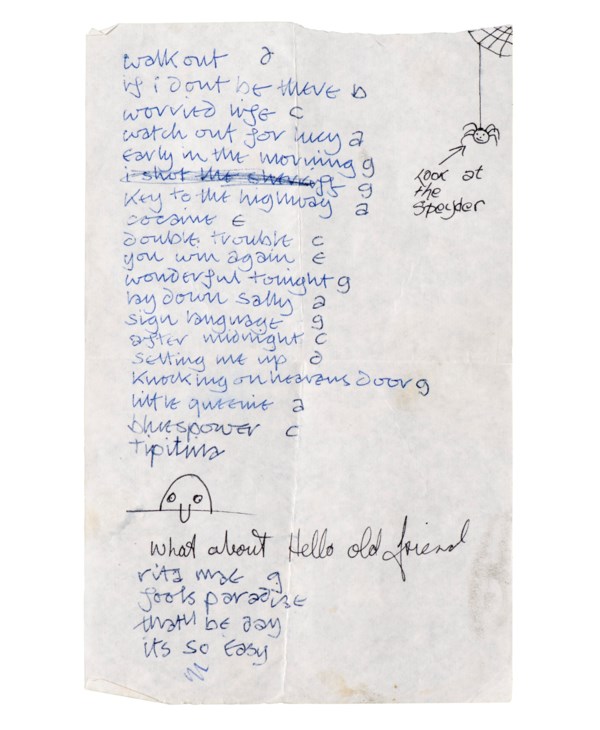 walk out d
if i dont be there b
worried life c
watch out for lucy a
Early in the morning g
i shot the sheriff g
Key to the highway a
cocaine E
double trouble c
you win again E
wonderful tonight g
lay down sally a
sign language g
after midnight c
setting me up d
Knocking on heavens door g
little queenie a
bluespower c
Tipitina
Look at
the
Speyder
what about Hello old friend
rita mae g
fools paradise
thatll be day
its so Easy